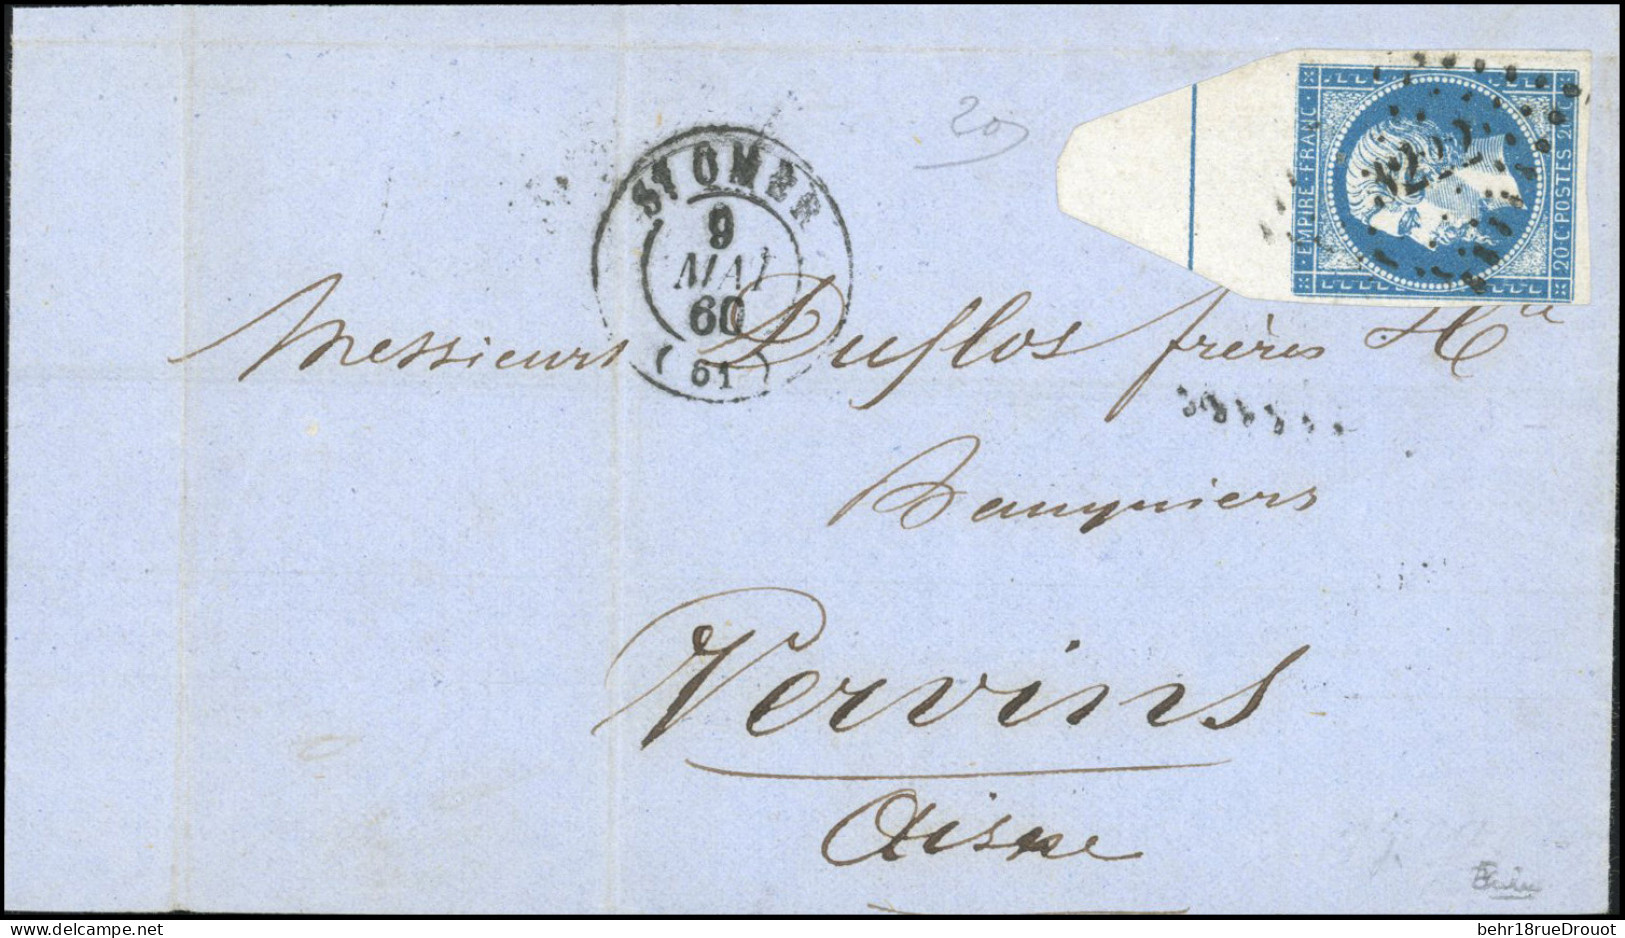 20
ST OMER
9
MAI
60
( 61 )
EMPIRE · FRANC ·
20 · C · POSTES 20 C
Messieurs Duflos frères & Cie
Banquiers
Vervins
Aisne
behr18rueDrouot